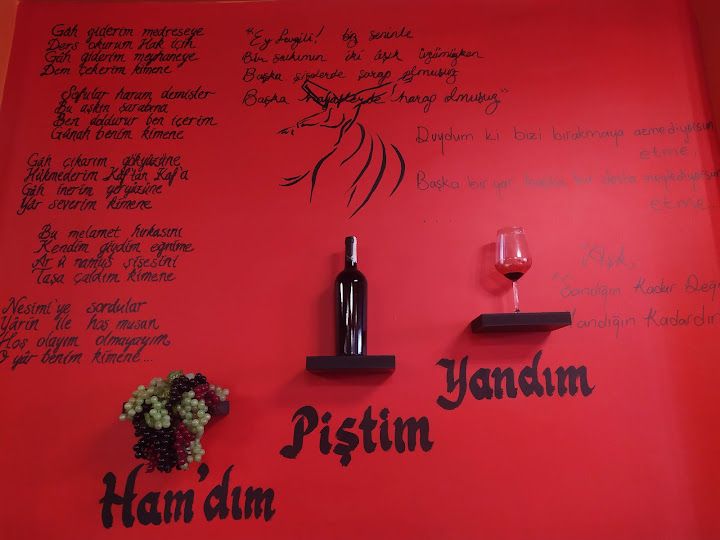 Gâh giderim medreseye
Ders okurum Hak için
Gâh giderim meyhaneye
Dem çekerim kimene
Sofular haram demişler
Bu aşkın şarabına
Ben doldurur ben içerim
Günah benim kimene
Gâh çıkarım gökyüzüne
Hükmederim Kaf'tan Kaf'a
Gâh inerim yeryüzüne
Yâr severim kimene
Bu melamet hırkasını
Kendim giydim eğnime
Ar û namus şişesini
Taşa çaldım kimene
Nesimi'ye sordular
Yârin ile hoş musan
Hoş olayım olmayayım
O yâr benim kimene...
"Ey Sevgili! biz seninle
Bir salkımın iki âşık üzümüyken
Başka şişelerde şarap olmuşuz
Başka harap olmuşuz"
Duydum ki bizi bırakmaya azmediyorsun
etme..
Başka bir yar başka bir dosta meylediyorsun
etme...
"Aşk,
Sandığın Kadar Değil
Yandığın Kadardır
Ham'dım
Piştim
Yandım